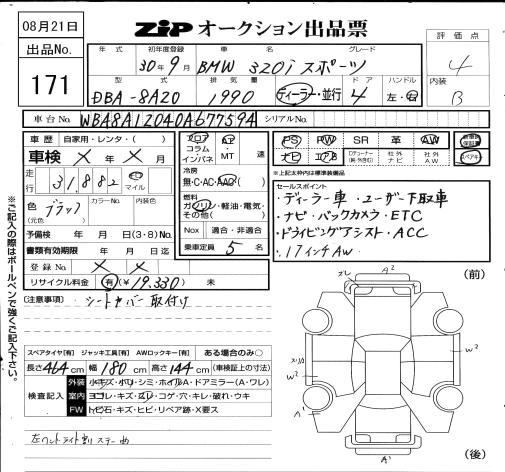 08月21日
ZIP オークション出品票
出品No.
171
年式 初年度登録 車名 グレード
30年9月 BMW 320i スポーツ
型式 排気量 ドア ハンドル
DBA-8A20 1990 ディーラー・並行 4 左・右
評価点
4
内装
B
車台No. WBA8A12040A677594 シリアルNo.
車歴 自家用・レンタ・( )
車検 × 年 × 月
走行 31,882 km マイル
色 ブラック カラーNo. 内装色
(元色)
予備検 年 月 日(3・8)No.
書類有効期限 年 月 日迄
登録No. × ×
リサイクル料金 有(¥19,330) 未
フロア AT
コラム
インパネ ・MT 速
冷房
無・C・AC・AAC( )
燃料
ガソリン・軽油・電気・
その他( )
Nox 適合・非適合
乗車定員 5 名
PS PW SR 革 AW
ナビ エアB 社外ナビ 社外AW
新車時保証書
スペアキー
※上記太枠内は標準装備品
セールスポイント
・ディーラー車 ・ユーザー下取車
・ナビ・バックカメラ・ETC
・ドライビングアシスト・ACC
・17インチAW
(注意事項) シートカバー取付け
※ご記入の際はボールペンで強くご記入下さい。
(前)
A2
W2
W2
A'
A'
(後)
スペアタイヤ[有] ジャッキ工具[有] AWロックキー[有] ある場合のみ○
長さ464cm 幅180cm 高さ144cm (車検証上の寸法)
検査記入
外装 小キズ・小凹・シミ・ホイルA・ドアミラー(A・ワレ)
室内 ヨゴレ・キズ・スレ・コゲ・穴・キレ・破れ・ウキ
FW トビ石・キズ・ヒビ・リペア跡・X要ス
左ヘッドライト割 ステー曲